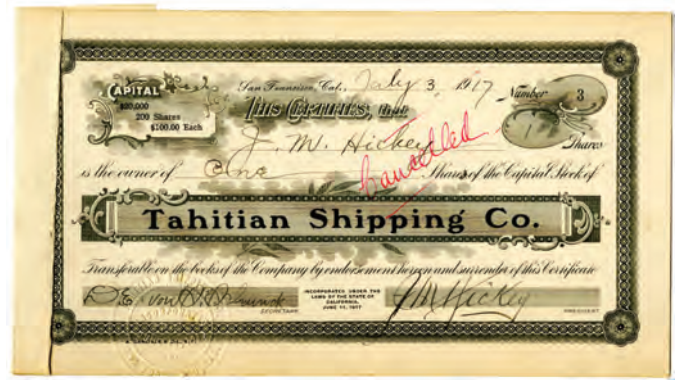 CAPITAL
$20,000
200 Shares
$100.00 Each
San Francisco, Cal., July 3, 1917
Number 3
THIS CERTIFIES, that
1 Shares
J. M. Hickey
is the owner of One Shares of the Capital Stock of
Cancelled
Tahitian Shipping Co.
Transferable on the books of the Company by endorsement hereon and surrender of this Certificate
INCORPORATED UNDER THE
LAWS OF THE STATE OF
CALIFORNIA,
JUNE 11, 1917
J M Hickey
SECRETARY
PRESIDENT